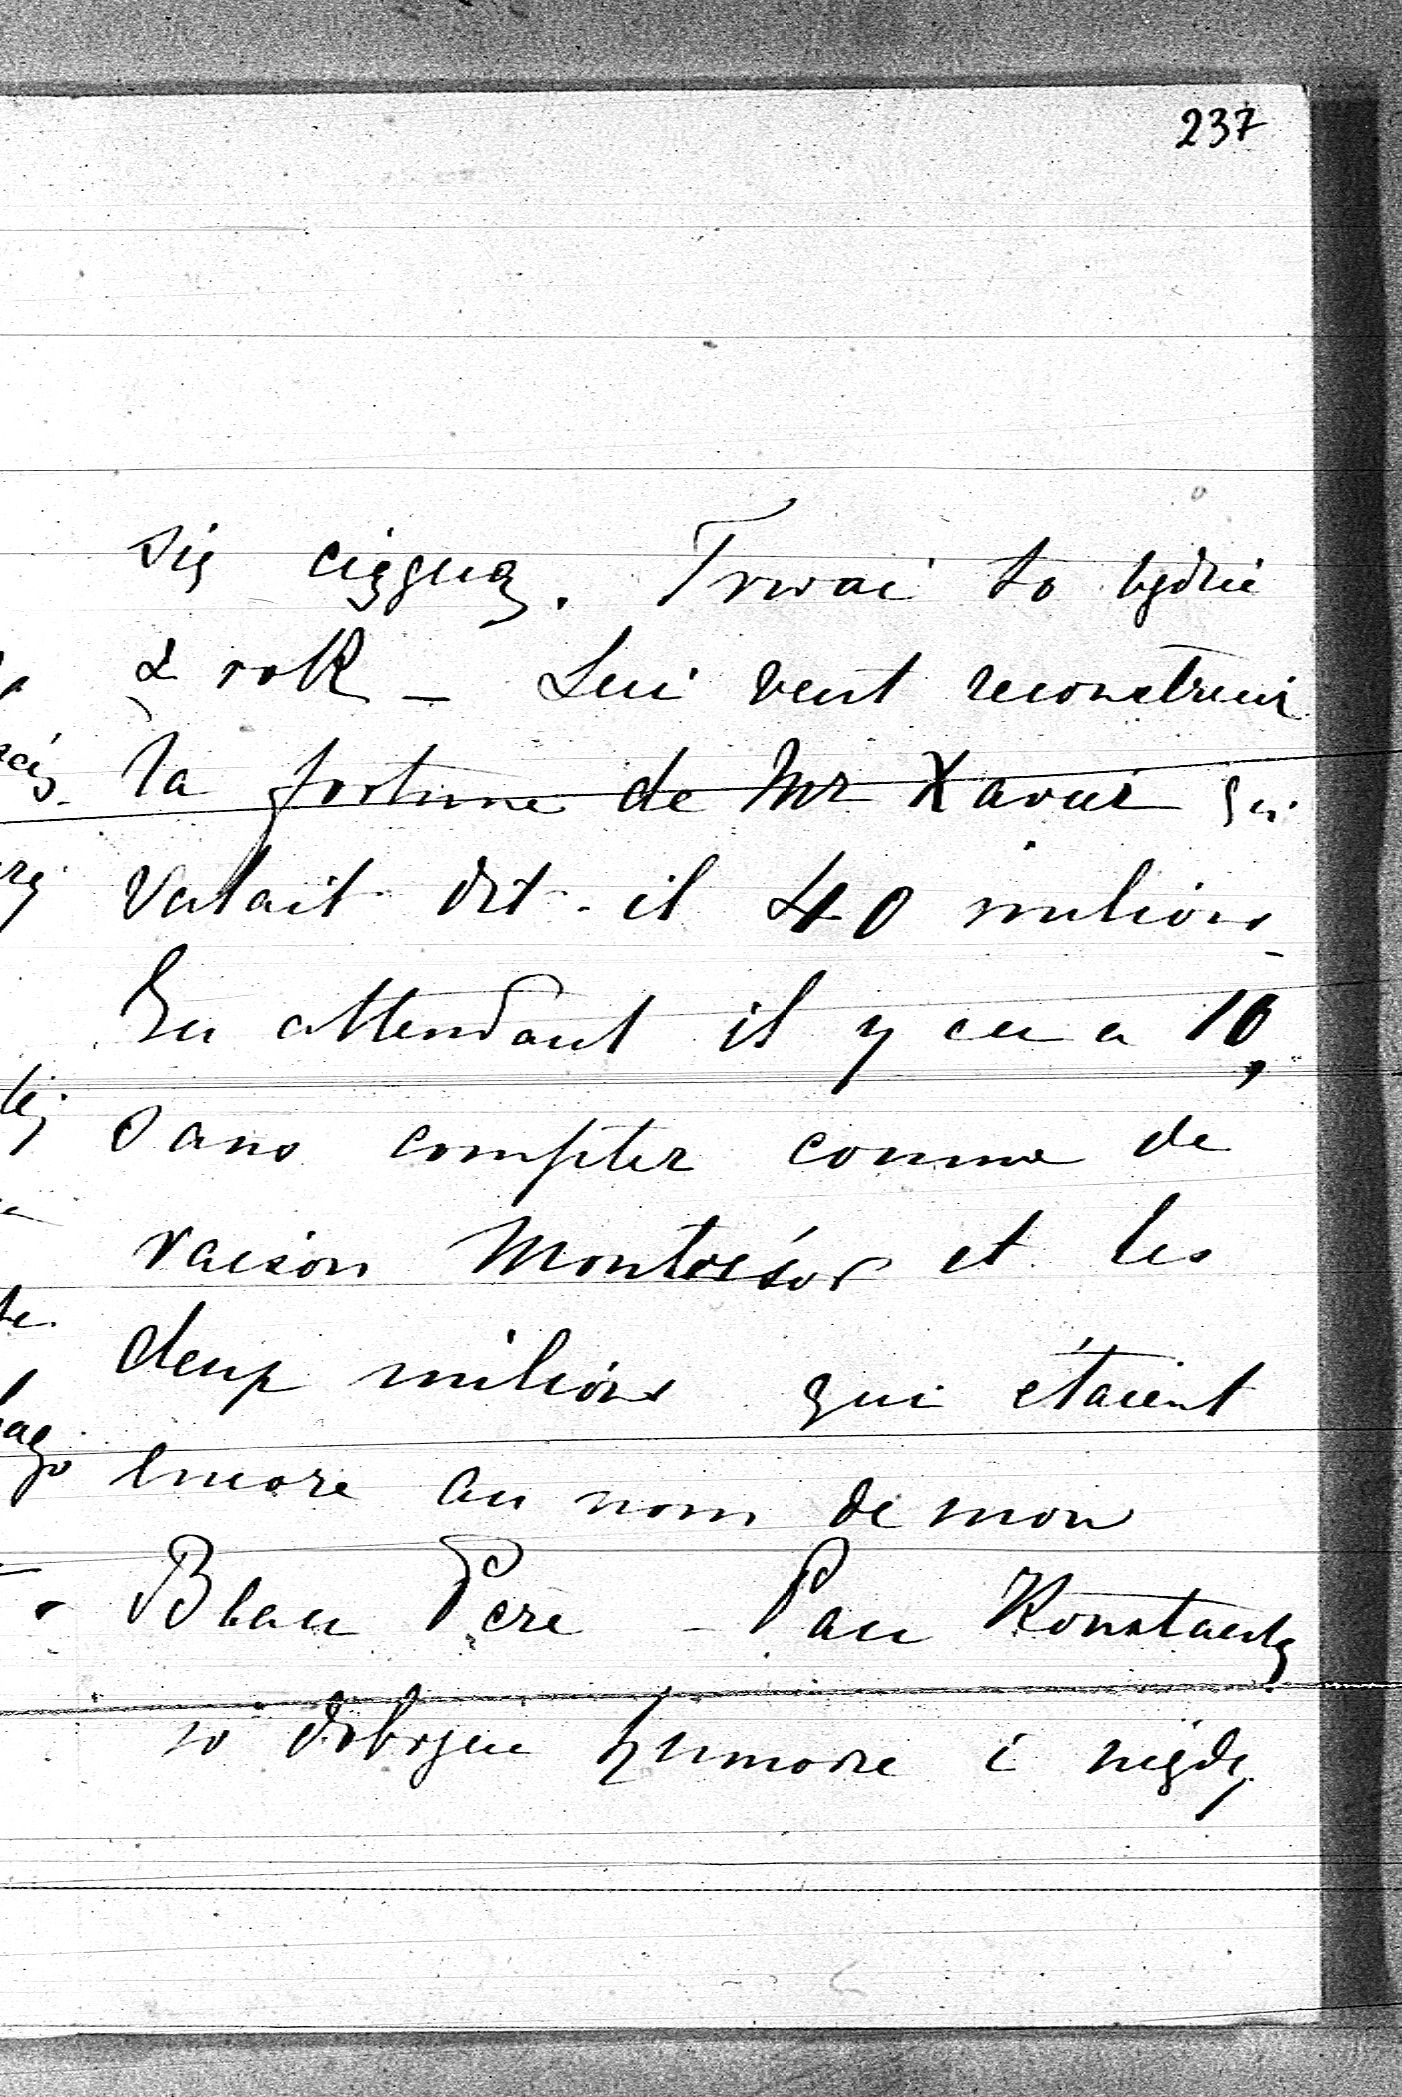 237
się ciągną. Trwać to będzie
z rok – Lui veut reconstruir
la fortune de Mr Xavier qui
valait dit-il 40 milions
En attendant il y en a 10,
sans compter comme de
raison Montrésor et les
deux milions qui étaient
encore au nom de mon
Beau Père – Pan Konstanty
w dobrym humorze i nigdy